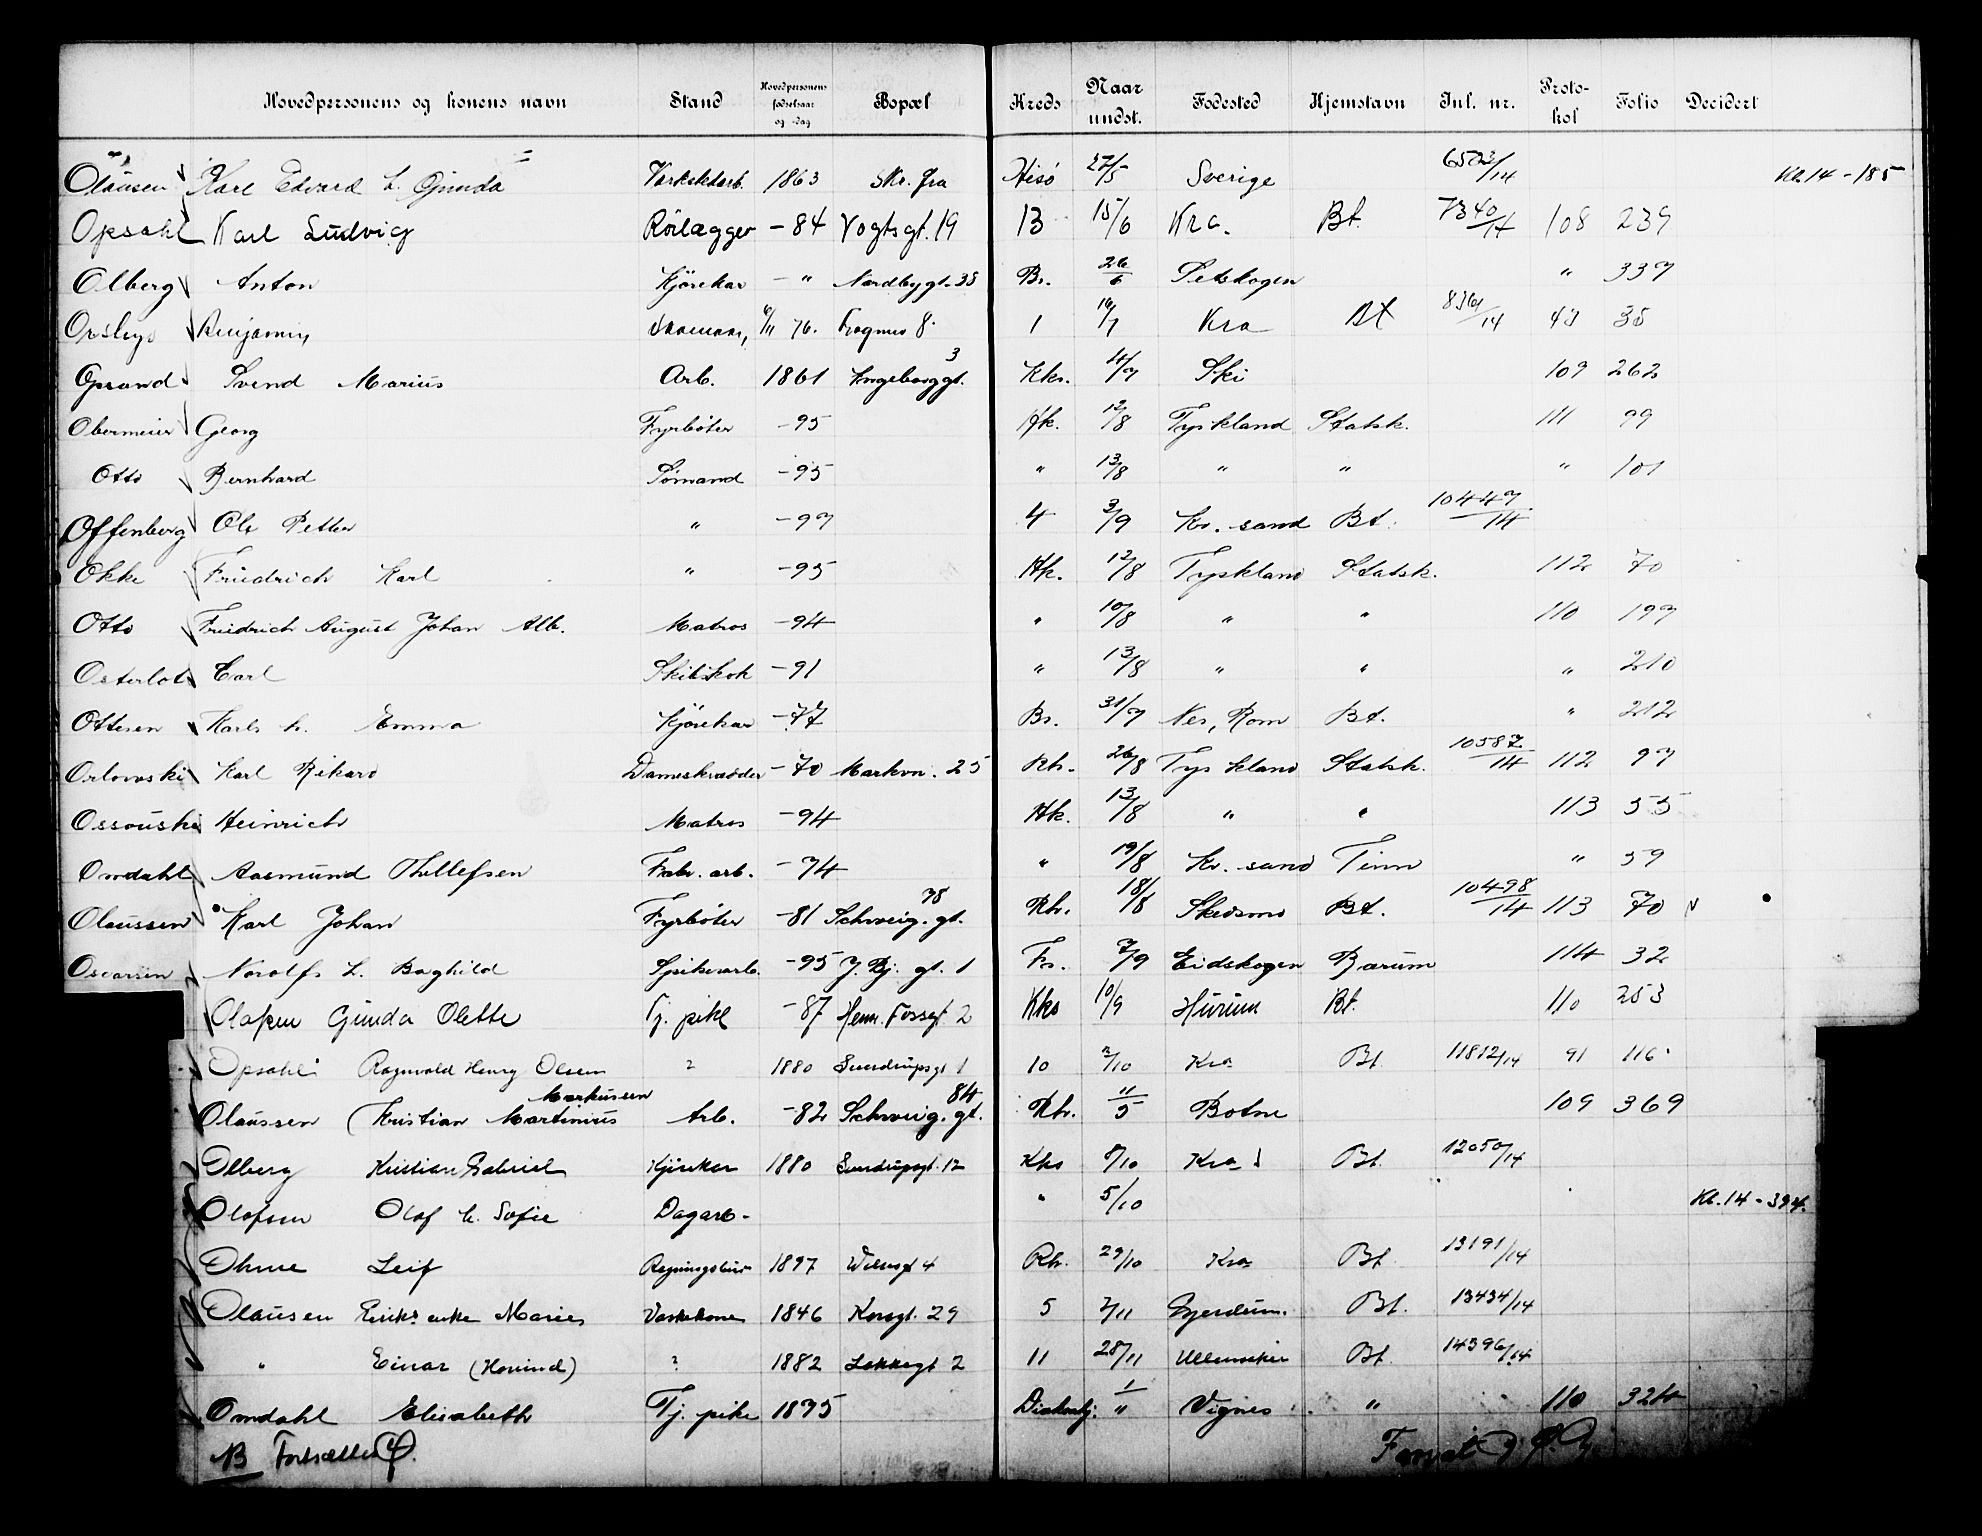 Hovedpersonens og konens navn Stand Hovedpersonens fødselsaar og -dag Bopæl Kreds Naar undst. Fødested Hjemstavn Jnl. nr. Proto-kol Folio Decidert
Olausen Karl Edvard h. Gunda 1863 Skr. fra Hisö 27/5 Sverige 6523/14 Kk. 14 - 185
Opsahl Karl Ludvig Rörlægger - 84 Vogtsgt. 19 13 15/6 Kra. Bt. 7340/14 108 239
Olberg Anton Kjörekar - " Nordbygt. 35 Br. 26/6 Setskogen " 337
Benjamin 6/11 76. Frogner 8. 1 16/7 Kra Bt 8361/14 43 35
Opsand Svend Marius Arb. 1861 Ingeborggt. 3 Kks. 4/7 Ski 109 262
Obermeier Georg Fyrböter - 95 Hk. 12/8 Tyskland Statsk. 111 99
Otto Bernhard Sömand - 95 " 13/8 " " " 101
Offenberg Ole Petter " - 97 4 3/9 Kr. sand Bt. 10447/14
Okke Friedrich Karl " - 95 Hk. 12/8 Tyskland Statsk. 112 70
Otto Friedrich August Johan Alb. Matros - 94 " 10/8 " " 110 197
Osterloh Carl Skibskok - 91 " 13/8 " " " 210
Ottesen Karls h. Emma Kjörekar - 77 Br. 31/7 Nes, Rom Bt. " 212
Orlowski Karl Rikard Dameskrædder - 70 Markvn. 25 Rh. 26/8 Tyskland Statsk. 10587/14 112 97
Ossouski Heinrich Matros - 94 Hk. 13/8 " " 113 55
Omdahl Aasmund Thellefsen Fabr. arb. - 74 " 19/8 Kr. sand Tinn " 59
Olaussen Karl Johan Fyrböter - 81 Schweig. gt. 78 Rh. 18/8 Skedsmo Bt. 10498/14 113 70
Oscarsen Norolfs h. Baghild Spikerarb. - 95 J. Bj. gt. 1 Fr. 7/9 Eidskogen Bærum 114 32
Olafsen Gunda Olette Tj. pike - 87 Henr. Fossgt. 2 Kks 10/9 Hurum Bt. 110 253
Opsahl Ragnvald Henry Olsen ? 1880 Sverdrupsgt 1 10 2/10 Kra Bt. 11812/14 91 116
Olaussen (Kristian Martinius Markussen Arb. - 82 Schweig. gt. 84 Rh. 11/5 Botne 109 369
Olberg Kristian Gabriel Kjörekar 1880 Sverdrupsgt. 12 Kks 8/10 Kra Bt. 12050/14
Olafsen Olaf h. Sofie Dagarb. " 5/10 Kk. 14 - 394.
Ohme Leif 1897 4 Rh. 29/10 Kra Bt. 13191/14
Olausen Eriks enke Marie Vaskekone 1846 Korsgt. 29 5 2/11 Gjerdrum. Bt. 13434/14
" Einar (Hovind) ? 1882 Løkkegt 2 11 28/11 Ullensaker Bt. 14396/14
Omdahl Elisabeth Tj. pike 1895 Diakonhj. 1/11 Vignes " 110 324
NB Fortsættes